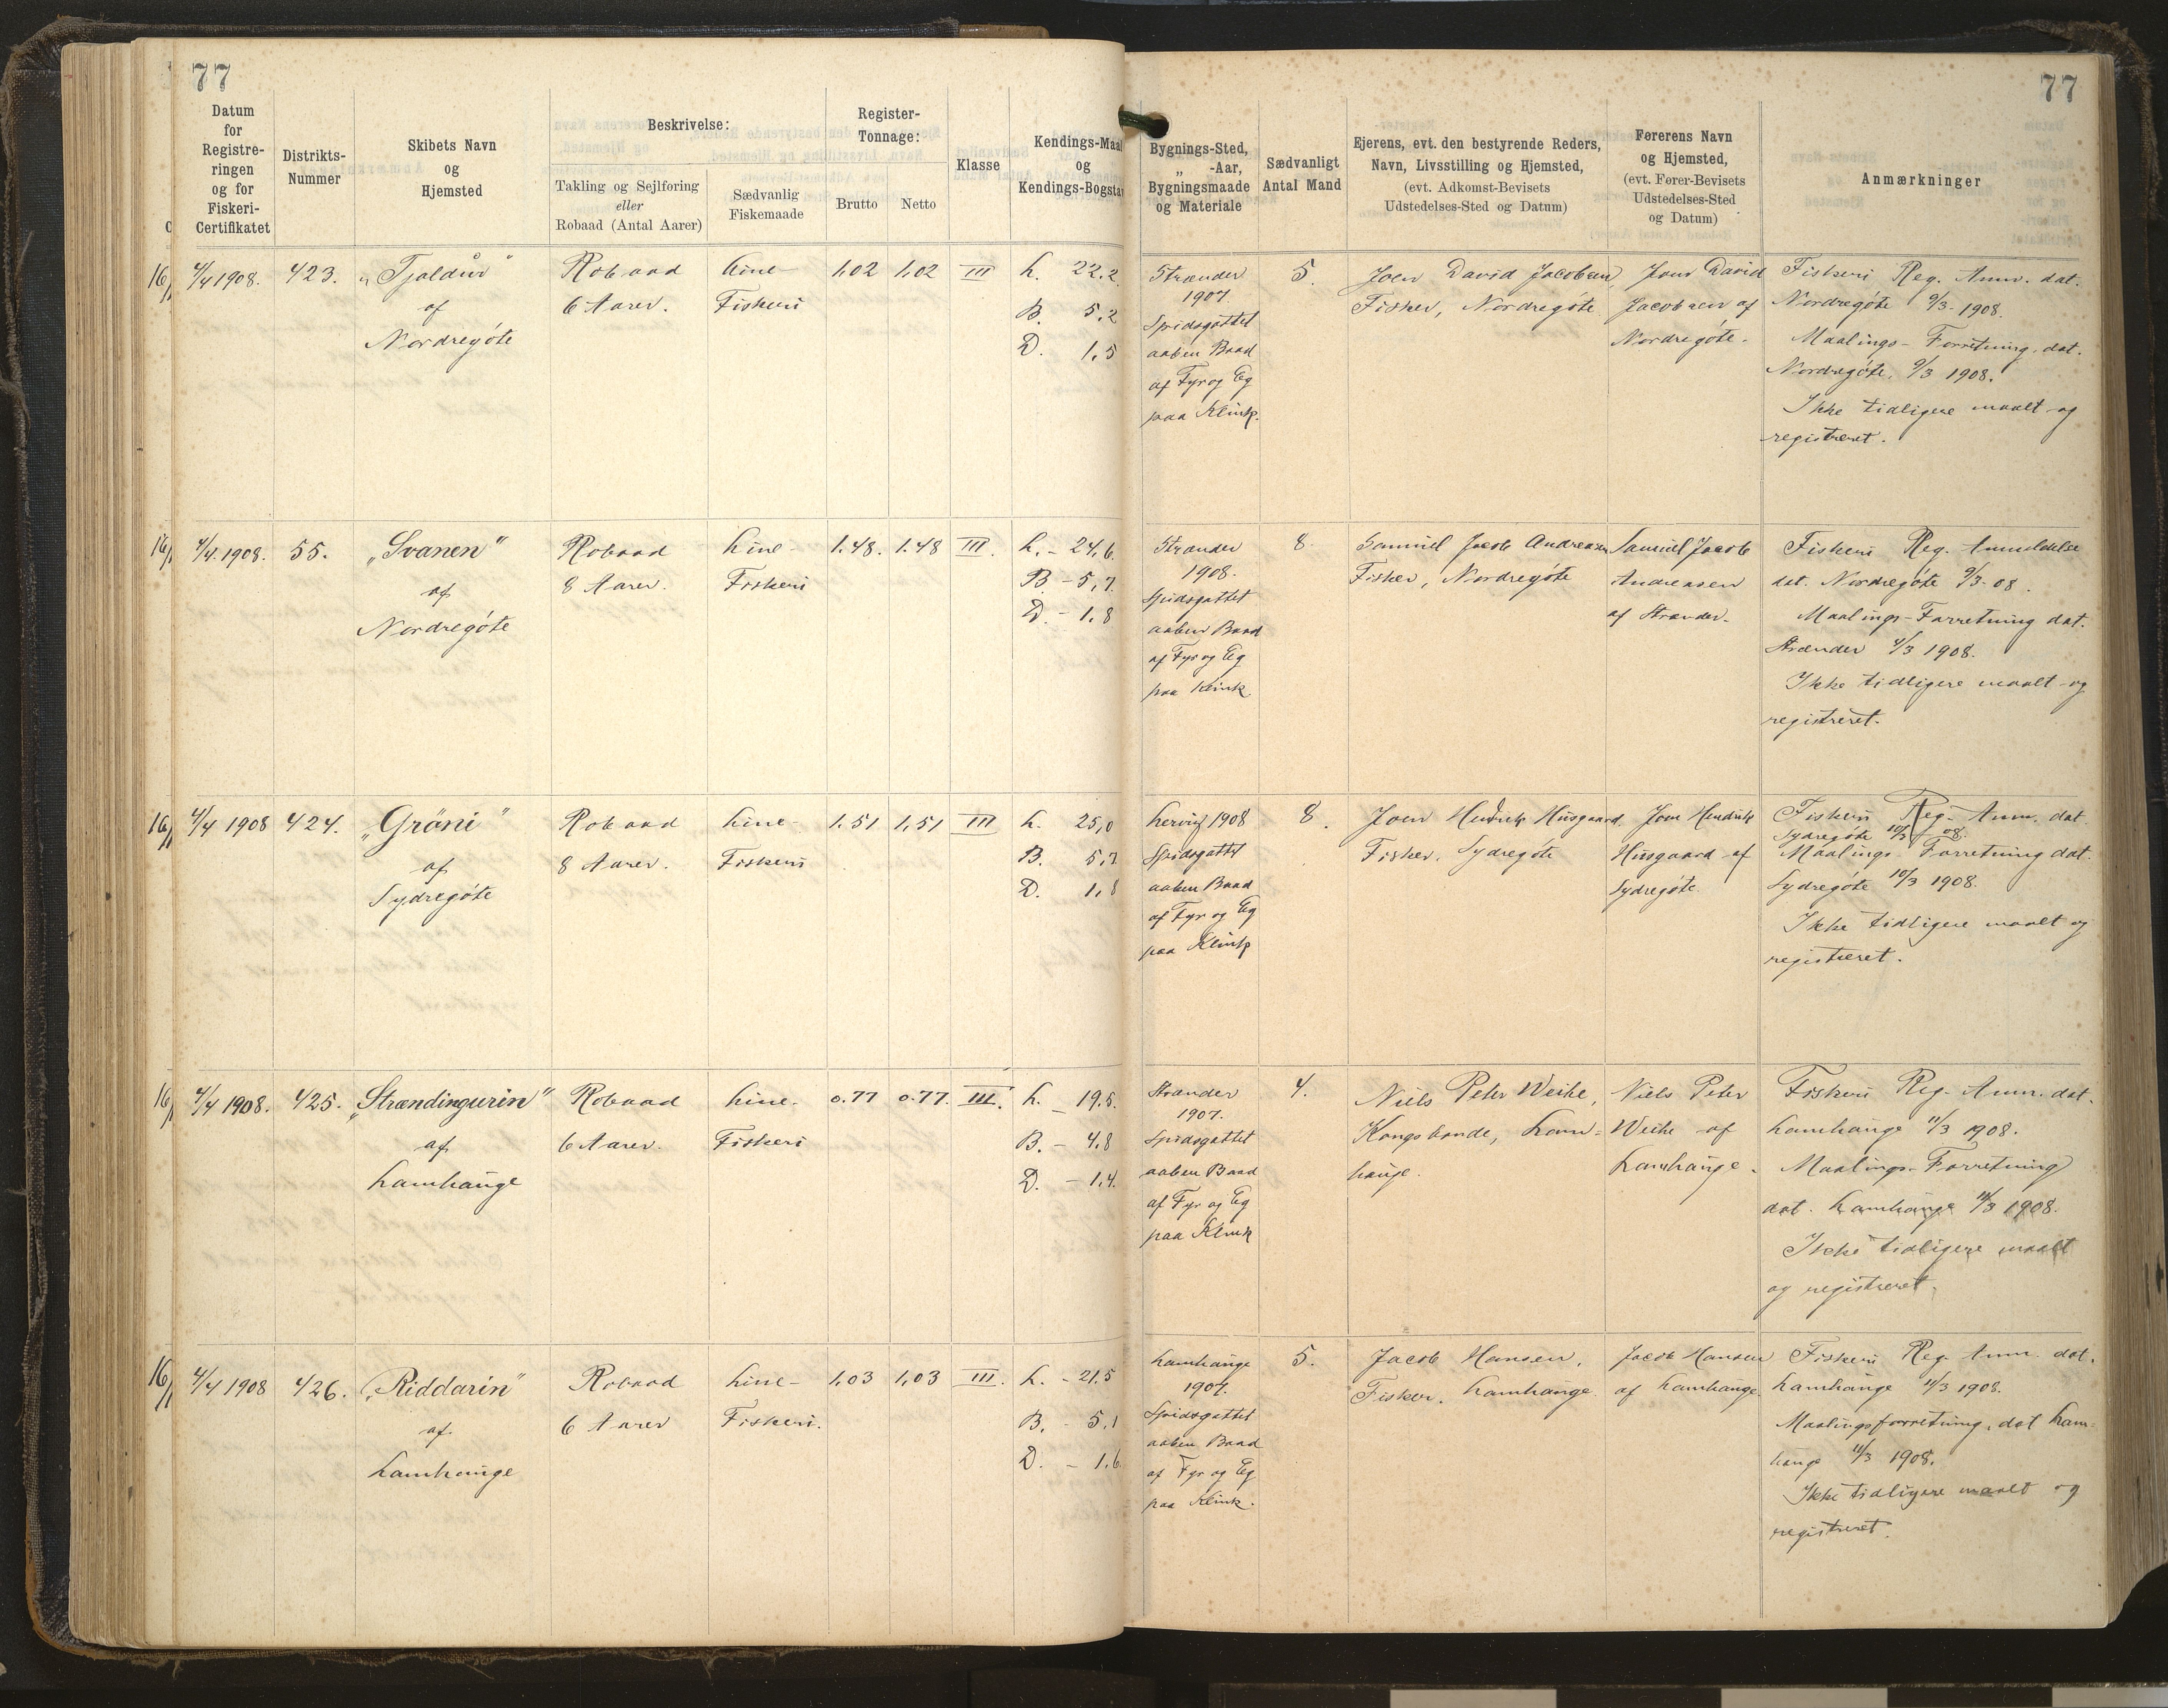 77
77
Datum
for
Registre-
ringen
og for
Fiskeri-
Certifikatet
Distrikts-
Nummer
Skibets Navn
og
Hjemsted
Beskrivelse:
Takling og Sejlføring
eller
Robaad (Antal Aarer)
Sædvanlig
Fiskemaade
Register-
Tonnage:
Brutto
Netto
Klasse
Kendings-Maal
og
Kendings-Bogstav
Bygnings-Sted,
„ -Aar,
Bygningsmaade
og Materiale
Sædvanligt
Antal Mand
Ejerens, evt. den bestyrende Reders,
Navn, Livsstilling og Hjemsted,
(evt. Adkomst-Bevisets
Udstedelses-Sted og Datum)
Førerens Navn
og Hjemsted,
(evt. Fører-Bevisets
Udstedelses-Sted
og Datum)
Anmærkninger
4/4 1908.
423.
„Tjaldur"
af
Nordregóte
Robaad
6 Aarer.
Line-
Fiskeri
1,02
1,02
III
L. 22,2
B. 5,2
D. 1,5
Strænder
1907.
Spidsgattet
aaben Baad
af Fyr og Eg
paa Klink.
5.
Joen David Jacobsen,
Fisker, Nordregóte
Joen David
Jacobsen af
Nordregóte.
Fiskeri Reg. Anm. dat.
Nordregóte 9/3 1908.
Maalings-Forretning dat.
Nordregóte. 9/3 1908.
Ikke tidligere maalt og
registreret.
4/4 1908.
55.
„Svanen"
af
Nordregóte
Robaad
8 Aarer.
Line-
Fiskeri
1.48.
1.48
III.
L. - 24,6
B. - 5,7
D. - 1,8
Strænder
1908.
Spidsgattet
aaben Baad
af Fyr og Eg
paa Klink
8.
Samuel Jacob Andreasen
Fisker, Nordregóte
Samuel Jacob
Andreasen
af Strænder.
Fiskeri Reg. Anmeldelse
dat. Nordregóte 9/3-08.
Maalings-Forretning dat.
Strænder 4/3 1908.
Ikke tidligere maalt og
registreret.
4/4 1908
424.
„Gräni"
af
Sydregóte
Robaad
8 Aarer.
Line-
Fiskeri
1.51
1,51
III
L. 25,0
B. 5,7
D. 1,8
Lervig 1908
Spidsgattet
aaben Baad
af Fyr og Eg
paa Klink
8.
Joen Hendrik Husgaard.
Fisker. Sydregóte
Joen Hendrik
Husgaard af
Sydregóte.
Fiskeri Reg. Anm. dat.
Sydregóte 10/3 08.
Maalings-Forretning dat.
Sydregóte 10/3 1908.
Ikke tidligere maalt og
registreret.
4/4 1908.
425.
„Strændingurin"
af
Lamhauge
Robaad
6 Aarer.
Line-
Fiskeri
0.77
0.77.
III.
L. - 19,5.
B. - 4,8
D. - 1,4.
Strænder
1907.
Spidsgattet
aaben Baad
af Fyr og Eg
paa Klink
4.
Niels Peter Weihe,
Kongsbonde, Lam-
hauge.
Niels Peter
Weihe af
Lamhauge.
Fiskeri Reg. Anm. dat.
Lamhauge 11/3 1908.
Maalings-Forretning
dat. Lamhauge 11/3 1908.
Ikke tidligere maalt
og registreret.
4/4 1908
426.
„Riddarin"
af
Lamhauge
Robaad
6 Aarer
Line-
Fiskeri.
1,03
1,03
III.
L. - 21,5
B. - 5,1
D. - 1,6
Lamhauge
1907.
Spidsgattet
aaben Baad
af Fyr og Eg
paa Klink.
5.
Jacob Hansen,
Fisker. Lamhauge.
Jacob Hansen
af Lamhauge
Fiskeri Reg. Anm. dat.
Lamhauge 11/3 1908.
Maalingsforretning dat Lam-
hauge 11/3 1908.
Ikke tidligere maalt og
registreret.